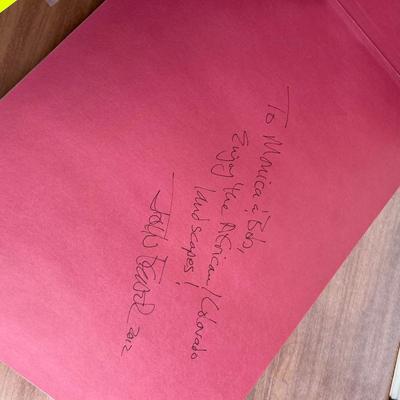 To Monica & Bob,
Enjoy the African/Colorado
landscapes!
John 2012